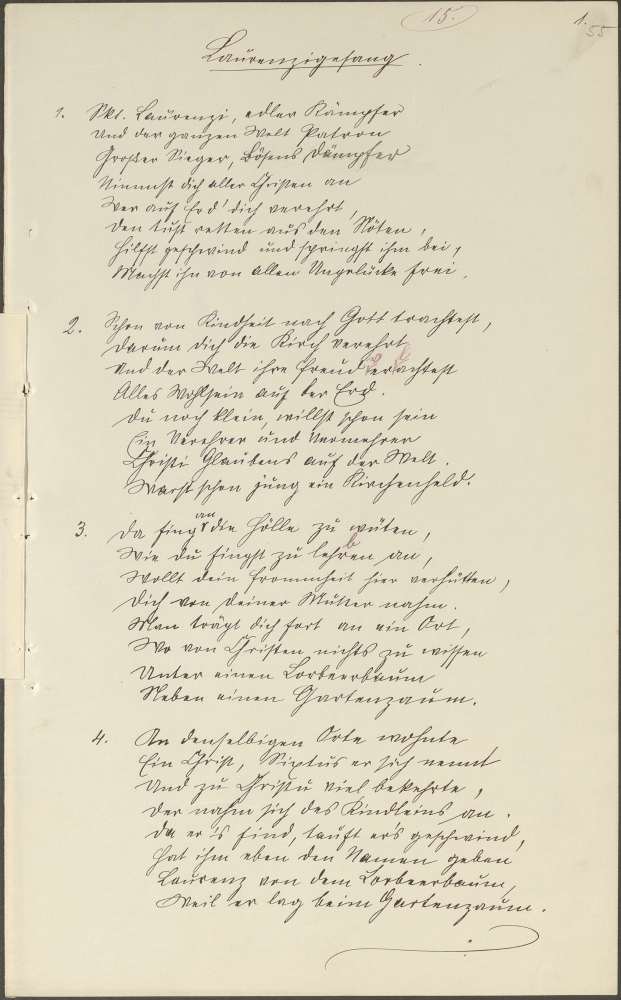 15.
1.
55
Laurenzigesang.
1. Skt. Laurenzi, edler Kämpfer
Und der ganzen Welt Patron
Großer Sieger, Bösens Dämpfer
Nimmst dich aller Christen an
Wer auf Erd' dich verehrt,
Den tust retten aus den Nöten,
Hilfst geschwind und springst ihm bei,
Machst ihn von allen Ungelücke frei.
2. Schon von Kindheit nach Gott trachtest,
Darum dich die Kirch verehrt
Und der Welt ihre Freud verachtest
Alles Wohlsein auf der Erd.
Du noch klein, willst schon sein
Ein Verehrer und Vermehrer
Christi Glaubens auf der Welt.
Warst schon jung ein Kirchenheld.
3. Da fing an die Hölle zu wüten,
Wie du fingst zu lehren an,
Wollt dein Frommheit hier verhütten,
Dich von deiner Mutter nahm.
Man trägt dich fort an ein Ort,
Wo von Christen nichts zu wissen
Unter einen Lorbeerbaum
Neben einen Gartenzaum.
4. An denselbigen Orte wohnte
Ein Christ, Sixtus er sich nennt
Und zu Christu viel bekehrte,
Der nahm sich des Kindleins an.
Da er's find, tauft er's geschwind,
Hat ihm eben den Namen geben
Laurenz von dem Lorbeerbaum,
Weil er lag beim Gartenzaum.